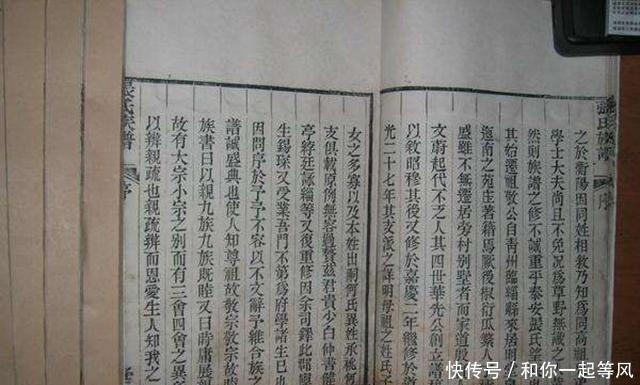 張氏族譜
序
之於衡陽因同姓相敘乃知爲同高
學士大夫尚且不免况爲草野無識之
然則族譜之修不誠重乎泰安張氏
其始遷祖敎公自青州臨緇縣來居
迤南之宛生著籍焉厥後椒衍瓜
盛雖不無遷居旁村別墅者而家道
文蔚起代不乏人其四世華光公創立
以敘昭穆其後又修於嘉慶二年繼修於道
光二十七年其支派之詳明母祖之姓氏子
女之多寡以及本姓出嗣何氏異姓承祧何
支俱載原例無容過贅茲君貴少白仲青能
亭廷詠緇等又復重修因余司鐸此郡
生錫琛又受業吾門不第爲府學諸生已也
因問序於予予不容以不文辭予維合族之
譜誠盛典也使人知尊祖故敬宗敬宗故
族書曰以親九族九族既睦又曰時庸展
故有大宗小宗之別而有三會四會之異
以辨親疏也親疏辨而恩愛生人知我之
張氏族譜
序
快传号 / 和你一起等风